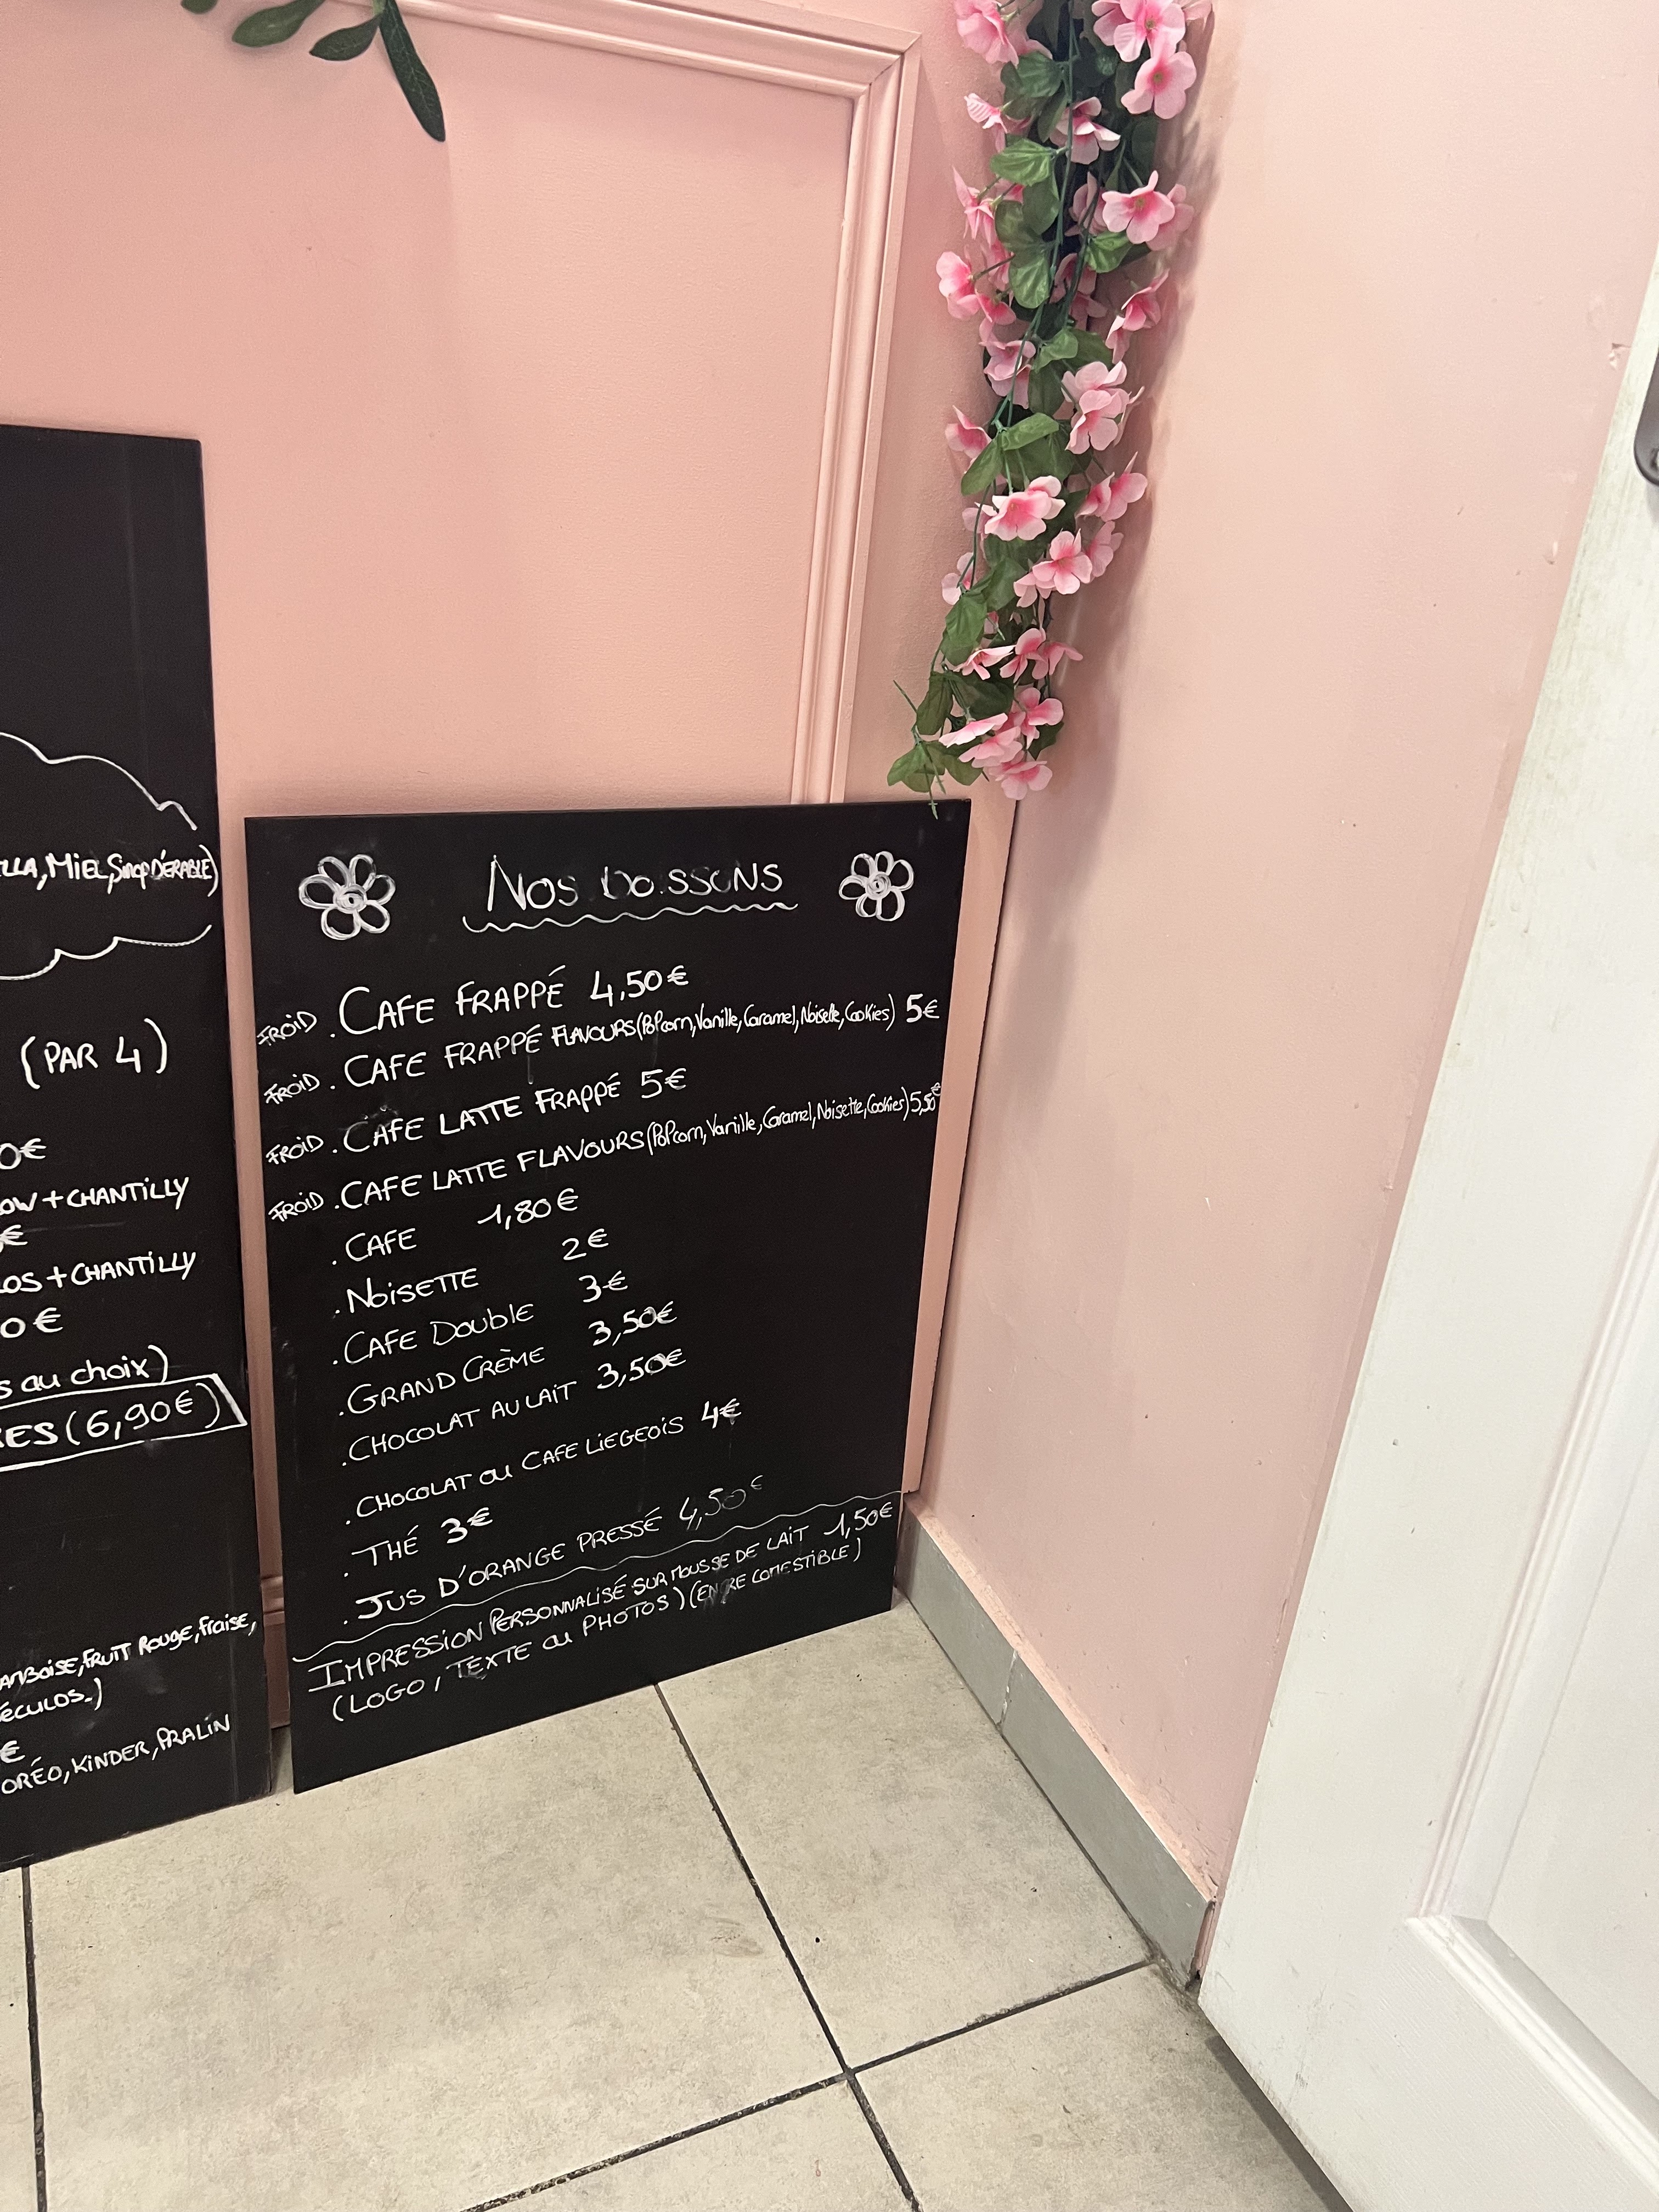 LLA, MIEL, Sirop D'ÉRABLE)
(PAR 4)
0€
OW + CHANTILLY
€
LOS + CHANTILLY
0€
s au choix)
RES (6,90€)
AMBOISE, FRUIT ROUGE, Fraise,
ÉCULOS..)
€
ORÉO, KINDER, PRALIN
NOS boissons
FROID . CAFE FRAPPÉ 4,50€
FROID . CAFE FRAPPÉ FLAVOURS (POPcorn, Vanille, Caramel, Noisette, Cookies) 5€
FROID . CAFE LATTE FRAPPÉ 5€
FROID . CAFE LATTE FLAVOURS (POPcorn, Vanille, Caramel, Noisette, Cookies) 5,50€
. CAFE 1,80€
. NOISETTE 2€
. CAFE DOUBLE 3€
. GRAND CRÈME 3,50€
. CHOCOLAT AU LAIT 3,50€
. CHOCOLAT ou CAFE LIEGEOIS 4€
. THÉ 3€
. JUS D'ORANGE PRESSÉ 4,50€
IMPRESSION PERSONNALISÉ SUR MOUSSE DE LAIT 1,50€
(LOGO, TEXTE ou PHOTOS) (COMESTIBLE)